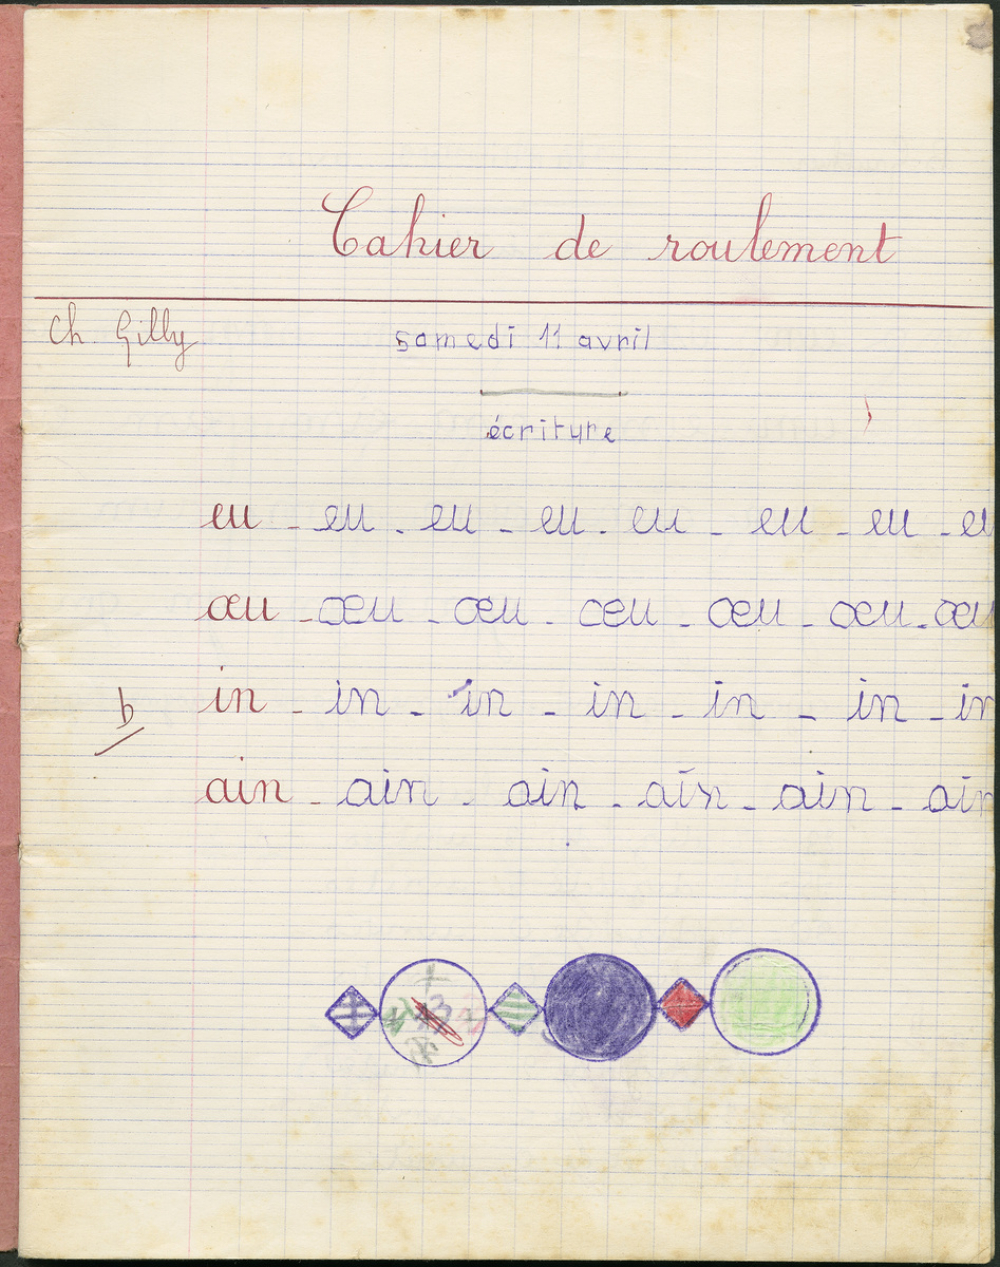 Cahier de roulement
Ch. Gilly
samedi 11 avril
écriture
eu - eu - eu - eu - eu - eu - eu - eu
œu - œu - œu - œu - œu - œu - œu
in - in - in - in - in - in - in
b
ain - ain - ain - ain - ain - ain